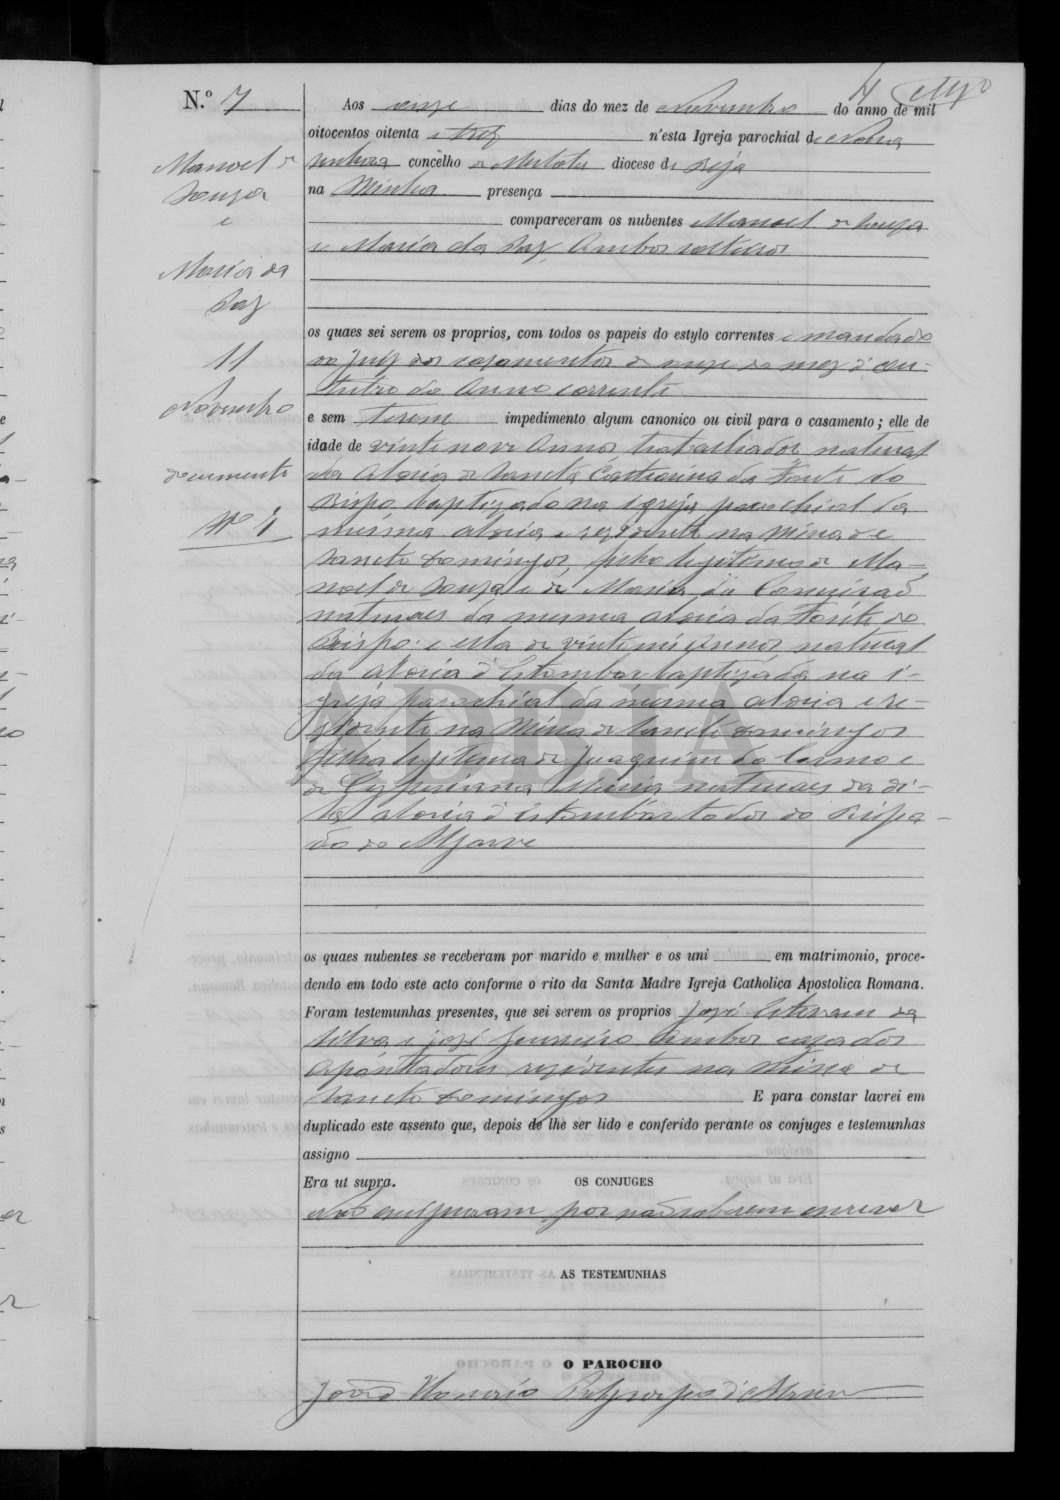 4
N.º 7
Manoel de
Souza
e
Maria da
Paz
11
Novembro
documento
Nº
Aos onze dias do mez de Novembro do anno de mil
oitocentos oitenta e trez n'esta Igreja parochial de Nossa
Senhora concelho de Mertola diocese de Beja
na Minha presença
compareceram os nubentes Manoel de Souza
e Maria da Paz, Ambos solteiros
os quaes sei serem os proprios, com todos os papeis do estylo correntes e mandado
do Juiz dos casamentos de onze do mez d'ou-
tubro do Anno corrente
e sem terem impedimento algum canonico ou civil para o casamento; elle de
idade de vinte nove Annos, trabalhador, natural
da Aldeia de Sancta Catharina da Fonte do
Bispo baptizado na igreja parochial da
mesma aldeia e rezidente na Mina de
Sancto Domingos, filho legitimo de Ma-
noel de Souza e de Maria da Conceição
naturaes da mesma aldeia da Fonte do
Bispo: e ella de vinte Annos, natural
da aldeia d'Estombar baptizada na i-
greja parochial da mesma aldeia e re-
zidente na Mina de Sancto Domingos
filha legitima de Joaquim do Carmo e
de Cypriana Maria naturaes da di-
ta aldeia d'Estombar todos do Bispa-
do do Algarve
ADBJA
os quaes nubentes se receberam por marido e mulher e os uni em matrimonio, proce-
dendo em todo este acto conforme o rito da Santa Madre Igreja Catholica Apostolica Romana.
Foram testemunhas presentes, que sei serem os proprios José Estevam da
Silva e José Januario Ambos cazados
Apontadores rezidentes na Mina de
Sancto Domingos E para constar lavrei em
duplicado este assento que, depois de lhe ser lido e conferido perante os conjuges e testemunhas
assigno
Era ut supra. OS CONJUGES
Não assignaram por não saberem escrever
AS TESTEMUNHAS
O PAROCHO
João Honorio d'Almeida